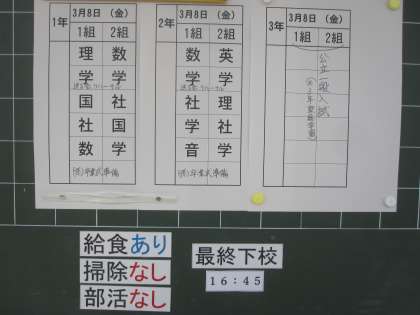 1年
3月8日 (金)
1組 2組
理 数
学 学
国 社
社 国
数 学
(放)卒業式準備
2年
3月8日 (金)
1組 2組
数 英
学 学
社 理
学 社
音 学
(放)卒業式準備
3年
3月8日 (金)
1組 2組
公立一般入試
給食あり
掃除なし
部活なし
最終下校
16:45